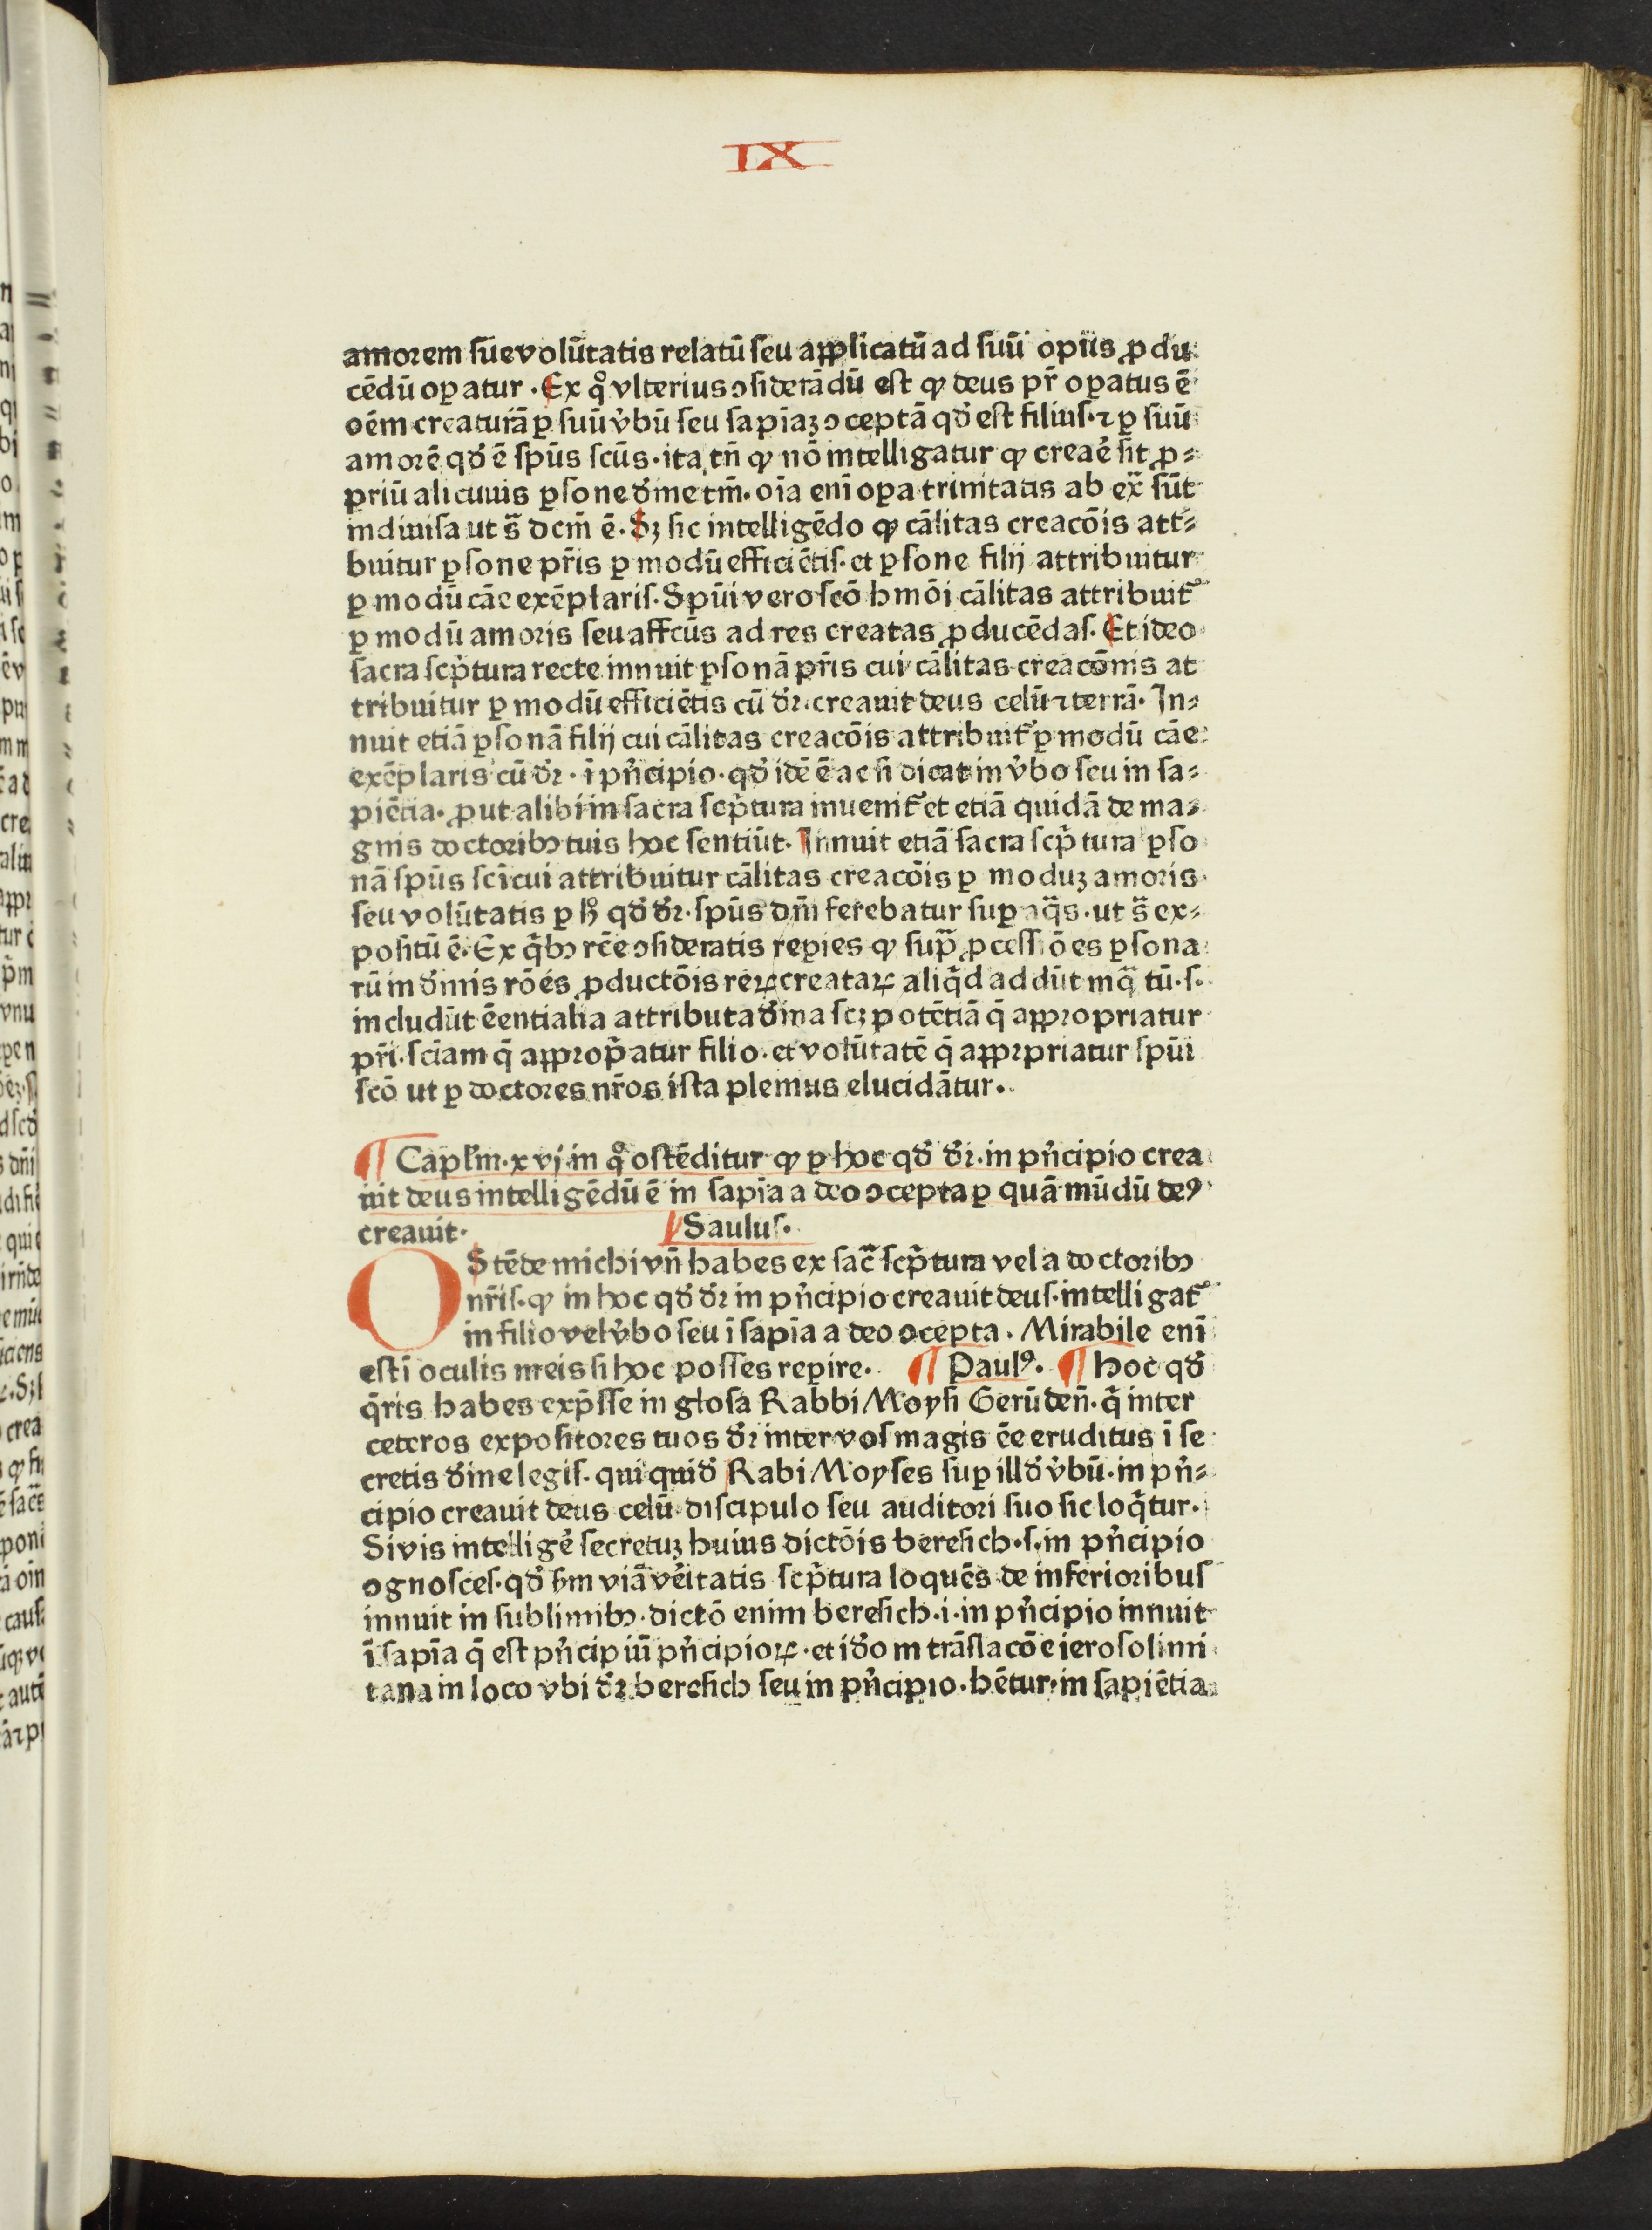 IX
amorem sue volūtatis relatū seu applicatū ad suū opus ꝓdu
cēdū oꝑatur. Ex qͦ vlterius ↄsiderādū est ꝙ deus pr̄ oꝑatus ē
oēm creaturā ꝑ suū v̓bū seu sapīaꝫ ↄceptā qd̓ est filius·⁊ ꝑ suū
amorē qd̓ ē spūs scūs·ita tn̄ ꝙ nō intelligatur ꝙ creaē sit ꝓ⸗
priū alicuius ꝑsone d̓ine tm̄·oīa enī oꝑa trinitatis ab ex̄ sūt
indiuisa ut s̄ dcm̄ ē·Sꝫ sic intelligēdo ꝙ cālitas creacōis att⸗
buitur ꝑsone pr̄is ꝑ modū efficiētis·et ꝑsone filij attribuitur
ꝑ modū cāe exēplaris·Spūi vero scō hmōi cālitas attribuit᷑
ꝑ modū amoris seu affcūs ad res creatas ꝓducēdas·Et ideo
sacra scp̄tura recte innuit ꝑsonā pr̄is cui cālitas creacōnis at
tribuitur ꝑ modū efficiētis cū d̓r·creauit deus celū ⁊ terrā·In⸗
nuit etiā ꝑsonā filij cui cālitas creacōis attribuit᷑ ꝑ modū cāe
exēplaris cū d̓r·ī pn̓cipio·qd̓ idē ē ac si dicat in v̓bo seu in sa⸗
piētia·ꝓut alibi in sacra scp̄tura inuenit᷑ et etiā quidā de ma⸗
gnis doctoribꝫ tuis hoc sentiūt·Innuit etiā sacra scp̄tura ꝑso
nā spūs scī cui attribuitur cālitas creacōis ꝑ moduꝫ amoris
seu volūtatis ꝑ hͦ qd̓ d̓r·spūs dn̄i ferebatur suꝑ aq̄s·ut s̄ ex⸗
positū ē·Ex q̄bꝫ rc̄e ↄsideratis reꝑies ꝙ supͣ ꝓcessiōes ꝑsona
rū in d̓inis rōēs ꝓductōis reꝝ creataꝝ aliq̄d addūt inqͣtū·s·
includūt ēentialia attributa d̓ina scꝫ potētiā q̄ apꝓpriatur
pr̄i·sciam q̄ appropatur filio·et volūtatē q̄ apprpriatur spūi
scō ut ꝑ doctores nr̄os ista plenius elucidātur.
¶ Capl̓m·xvj·in qͦ ostēditur ꝙ ꝑ hoc qd̓ d̓r·in pn̓cipio crea
uit deus intelligēdū ē in sapīa a deo ↄcepta ꝑ quā mūdū deꝰ
creauit. Saulus.
OStēde michi vn̄ habes ex sac̄ scp̄tura vel a doctoribꝫ
nr̄is·ꝙ in hoc qd̓ d̓r in pn̓cipio creauit deus·intelligat᷑
in filio vel v̓bo seu ī sapīa a deo ↄcepta. Mirabile enī
est ī oculis meis si hoc posses reꝑire. ¶ Paulꝰ. ¶ Hoc qd̓
q̄ris habes exp̄sse in glosa Rabbi Moysi Gerūden̄·q̄ inter
ceteros expositores tuos d̓r inter vos magis ēe eruditus ī se
cretis d̓ine legis·qui quid̓ Rabi Moyses suꝑ illd̓ v̓bū·in pn̓⸗
cipio creauit deus celū discipulo seu auditori suo sic loq̄tur.
Si vis intelligē secretuꝫ huius dictōis beresich·s·in pn̓cipio
ognosces·qd̓ sm̄ viā v̓eritatis scp̄tura loquēs de inferioribus
innuit in sublimibꝫ·dictō enim beresich·i·in pn̓cipio innuit
ī sapīa q̄ est pn̓cipiū pn̓cipioꝝ·et id̓o in trāslacōe ierosolimi
tana in loco vbi d̓r beresich seu in pn̓cipio·hētur·in sapiētia